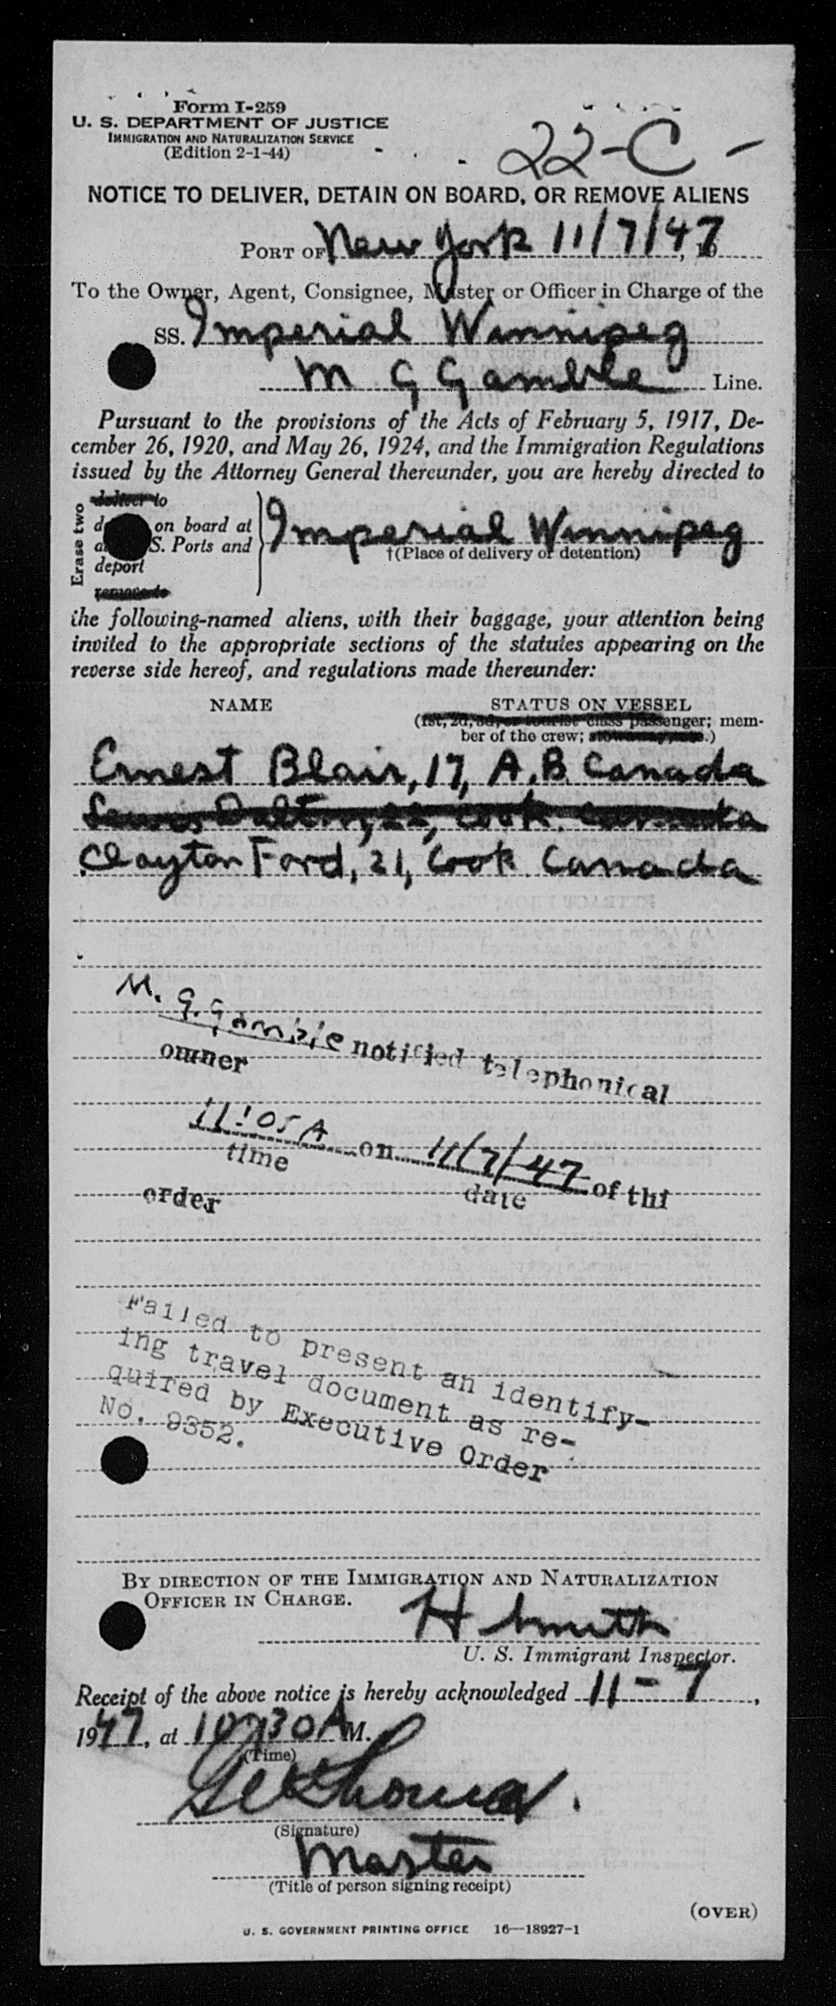 Form I-259
U. S. DEPARTMENT OF JUSTICE
IMMIGRATION AND NATURALIZATION SERVICE
(Edition 2-1-44)
22-C -
NOTICE TO DELIVER, DETAIN ON BOARD, OR REMOVE ALIENS
PORT OF New York 11/7/47
To the Owner, Agent, Consignee, Master or Officer in Charge of the
SS. Imperial Winnipeg
M G Gamble Line.
Pursuant to the provisions of the Acts of February 5, 1917, De-
cember 26, 1920, and May 26, 1924, and the Immigration Regulations
issued by the Attorney General thereunder, you are hereby directed to
Erase two
deliver to
on board at
S. Ports and
deport
remove to
Imperial Winnipeg
†(Place of delivery or detention)
the following-named aliens, with their baggage, your attention being
invited to the appropriate sections of the statutes appearing on the
reverse side hereof, and regulations made thereunder:
NAME STATUS ON VESSEL
(1st, 2d, 3d, or tourist class passenger; mem-
ber of the crew; stowaway, etc.)
Ernest Blair, 17, A.B. Canada
Lewis Dalton, 22, Cook. Canada
Clayton Ford, 21, Cook Canada
M. G. Gamble notified telephonical
owner
11:05 A on 11/7/47 of thi
time date
order
Failed to present an identify-
ing travel document as re-
quired by Executive Order
No. 9352.
BY DIRECTION OF THE IMMIGRATION AND NATURALIZATION
OFFICER IN CHARGE.
H Smith
U. S. Immigrant Inspector.
Receipt of the above notice is hereby acknowledged 11-7,
1947, at 10:30 A M.
(Time)
(Signature)
Master
(Title of person signing receipt)
(OVER)
U. S. GOVERNMENT PRINTING OFFICE 16—18927-1